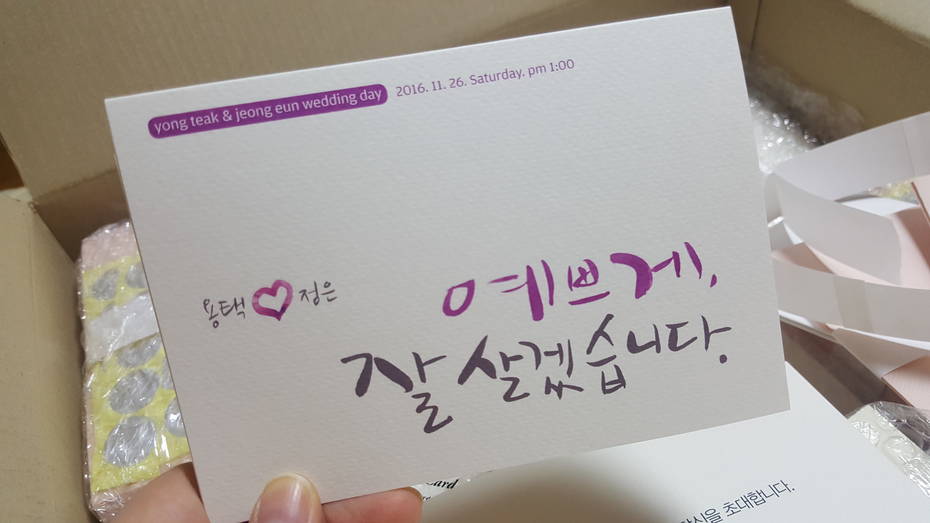 yong teak & jeong eun wedding day 2016. 11. 26. Saturday. pm 1:00
용택 정은
예쁘게,
잘 살겠습니다.
초대합니다.